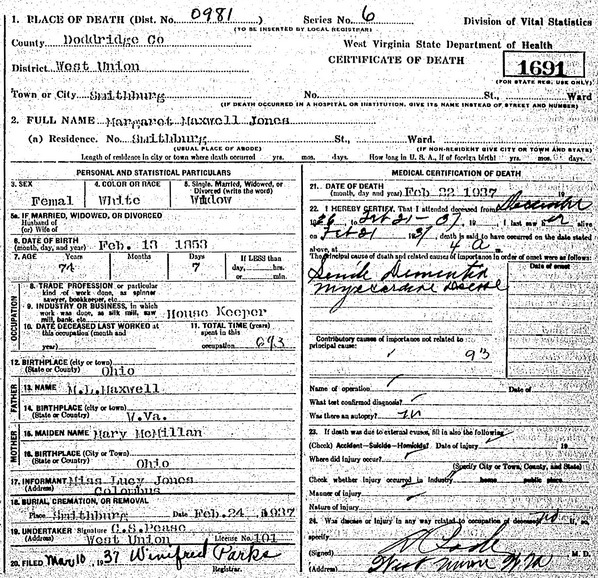 1. PLACE OF DEATH (Dist. No. 0981) Series No. 6 Division of Vital Statistics
(TO BE INSERTED BY LOCAL REGISTRAR)
County Doddridge Co West Virginia State Department of Health
District West Union CERTIFICATE OF DEATH 1691
(FOR STATE REG. USE ONLY)
Town or City Smithburg No. St., Ward
(IF DEATH OCCURRED IN A HOSPITAL OR INSTITUTION, GIVE ITS NAME INSTEAD OF STREET AND NUMBER)
2. FULL NAME Margaret Maxwell Jones
(a) Residence. No. Smithburg St., Ward.
(USUAL PLACE OF ABODE) (IF NON-RESIDENT GIVE CITY OR TOWN AND STATE)
Length of residence in city or town where death occurred yrs. mos. ds. How long in U. S. A., if of foreign birth? yrs. mos. ds.
PERSONAL AND STATISTICAL PARTICULARS
3. SEX 4. COLOR OR RACE 5. Single, Married, Widowed, or Divorced (write the word)
Femal White Widow
5a. IF MARRIED, WIDOWED, OR DIVORCED
Husband of
(or) Wife of
6. DATE OF BIRTH
(month, day, and year) Feb. 13
7. AGE Years Months Days If LESS than
7 day, hrs.
or min.
8. TRADE, PROFESSION or particular
kind of work done, as spinner
sawyer, bookkeeper, etc.
9. INDUSTRY OR BUSINESS, in which
work was done, as silk mill, saw
mill, bank, etc. House Keeper
10. DATE DECEASED LAST WORKED at 11. TOTAL TIME (years)
this occupation (month and spent in this
year) occupation
OCCUPATION
12. BIRTHPLACE (city or town)
(State or County) Ohio
FATHER
13. NAME M.L. Maxwell
14. BIRTHPLACE (city or town)
(State or Country) W.Va.
MOTHER
15. MAIDEN NAME Mary McMillan
16. BIRTHPLACE (City or Town)
(State or Country) Ohio
17. INFORMANT Miss Lucy Jones
(Address) Colombus
18. BURIAL, CREMATION, OR REMOVAL
Place Smithburg Date Feb. 24, 1937
19. UNDERTAKER Signature C.S. Pease
(Address) West Union License No. 101
20. FILED Mar 10, 1937 Winifred Parks
Registrar.
MEDICAL CERTIFICATION OF DEATH
21. DATE OF DEATH
(month, day and year) Feb 22 1937 19
22. I HEREBY CERTIFY, That I attended deceased from December
I last saw her
alive on Feb 21 1937 death is said to have occurred on the date stated
above, at 4 a m.
The principal cause of death and related causes of importance in order of onset were as follows:
Date of onset
Senile Dementia
Myocardial Disease
Contributory causes of importance not related to
principal cause:
93
Name of operation Date of
What test confirmed diagnosis?
Was there an autopsy? no
23. If death was due to external causes, fill in also the following
(Check) Accident—Suicide—Homicide? Date of injury 19
Where did injury occur?
(Specify City or Town, County, and State)
Check whether injury occurred in industry home public place
Manner of injury
Nature of injury
24. Was disease or injury in any way related to occupation of deceased? no If so,
specify
(Signed) M. D.
(Address) West Union W Va